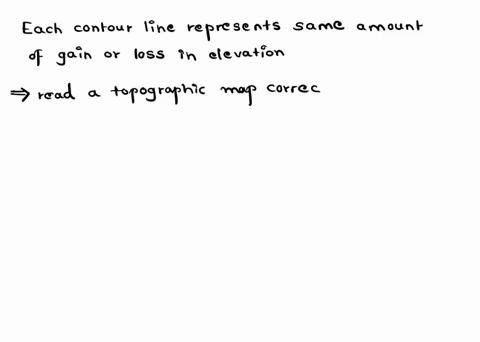 Each contour line represents same amount
of gain or loss in elevation
⇒ read a topographic map correc